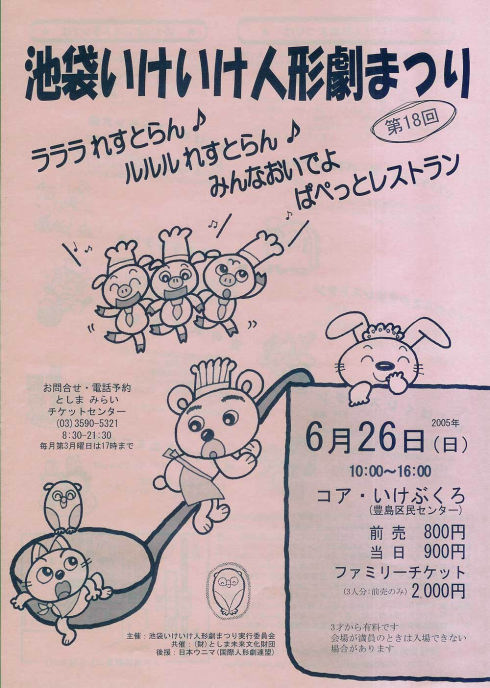 池袋いけいけ人形劇まつり
第18回
ラララ れすとらん♪
ルルル れすとらん♪
みんなおいでよ
ぱぺっとレストラン
お問合せ・電話予約
としま みらい
チケットセンター
(03)3590-5321
8:30-21:30
毎月第3月曜日は17時まで
2005年
6月26日(日)
10:00~16:00
コア・いけぶくろ
(豊島区民センター)
前売 800円
当日 900円
ファミリーチケット
(3人分:前売のみ) 2,000円
3才から有料です
会場が満員のときは入場できない
場合があります
主催:池袋いけいけ人形劇まつり実行委員会
共催:(財)としま未来文化財団
後援:日本ウニマ(国際人形劇連盟)